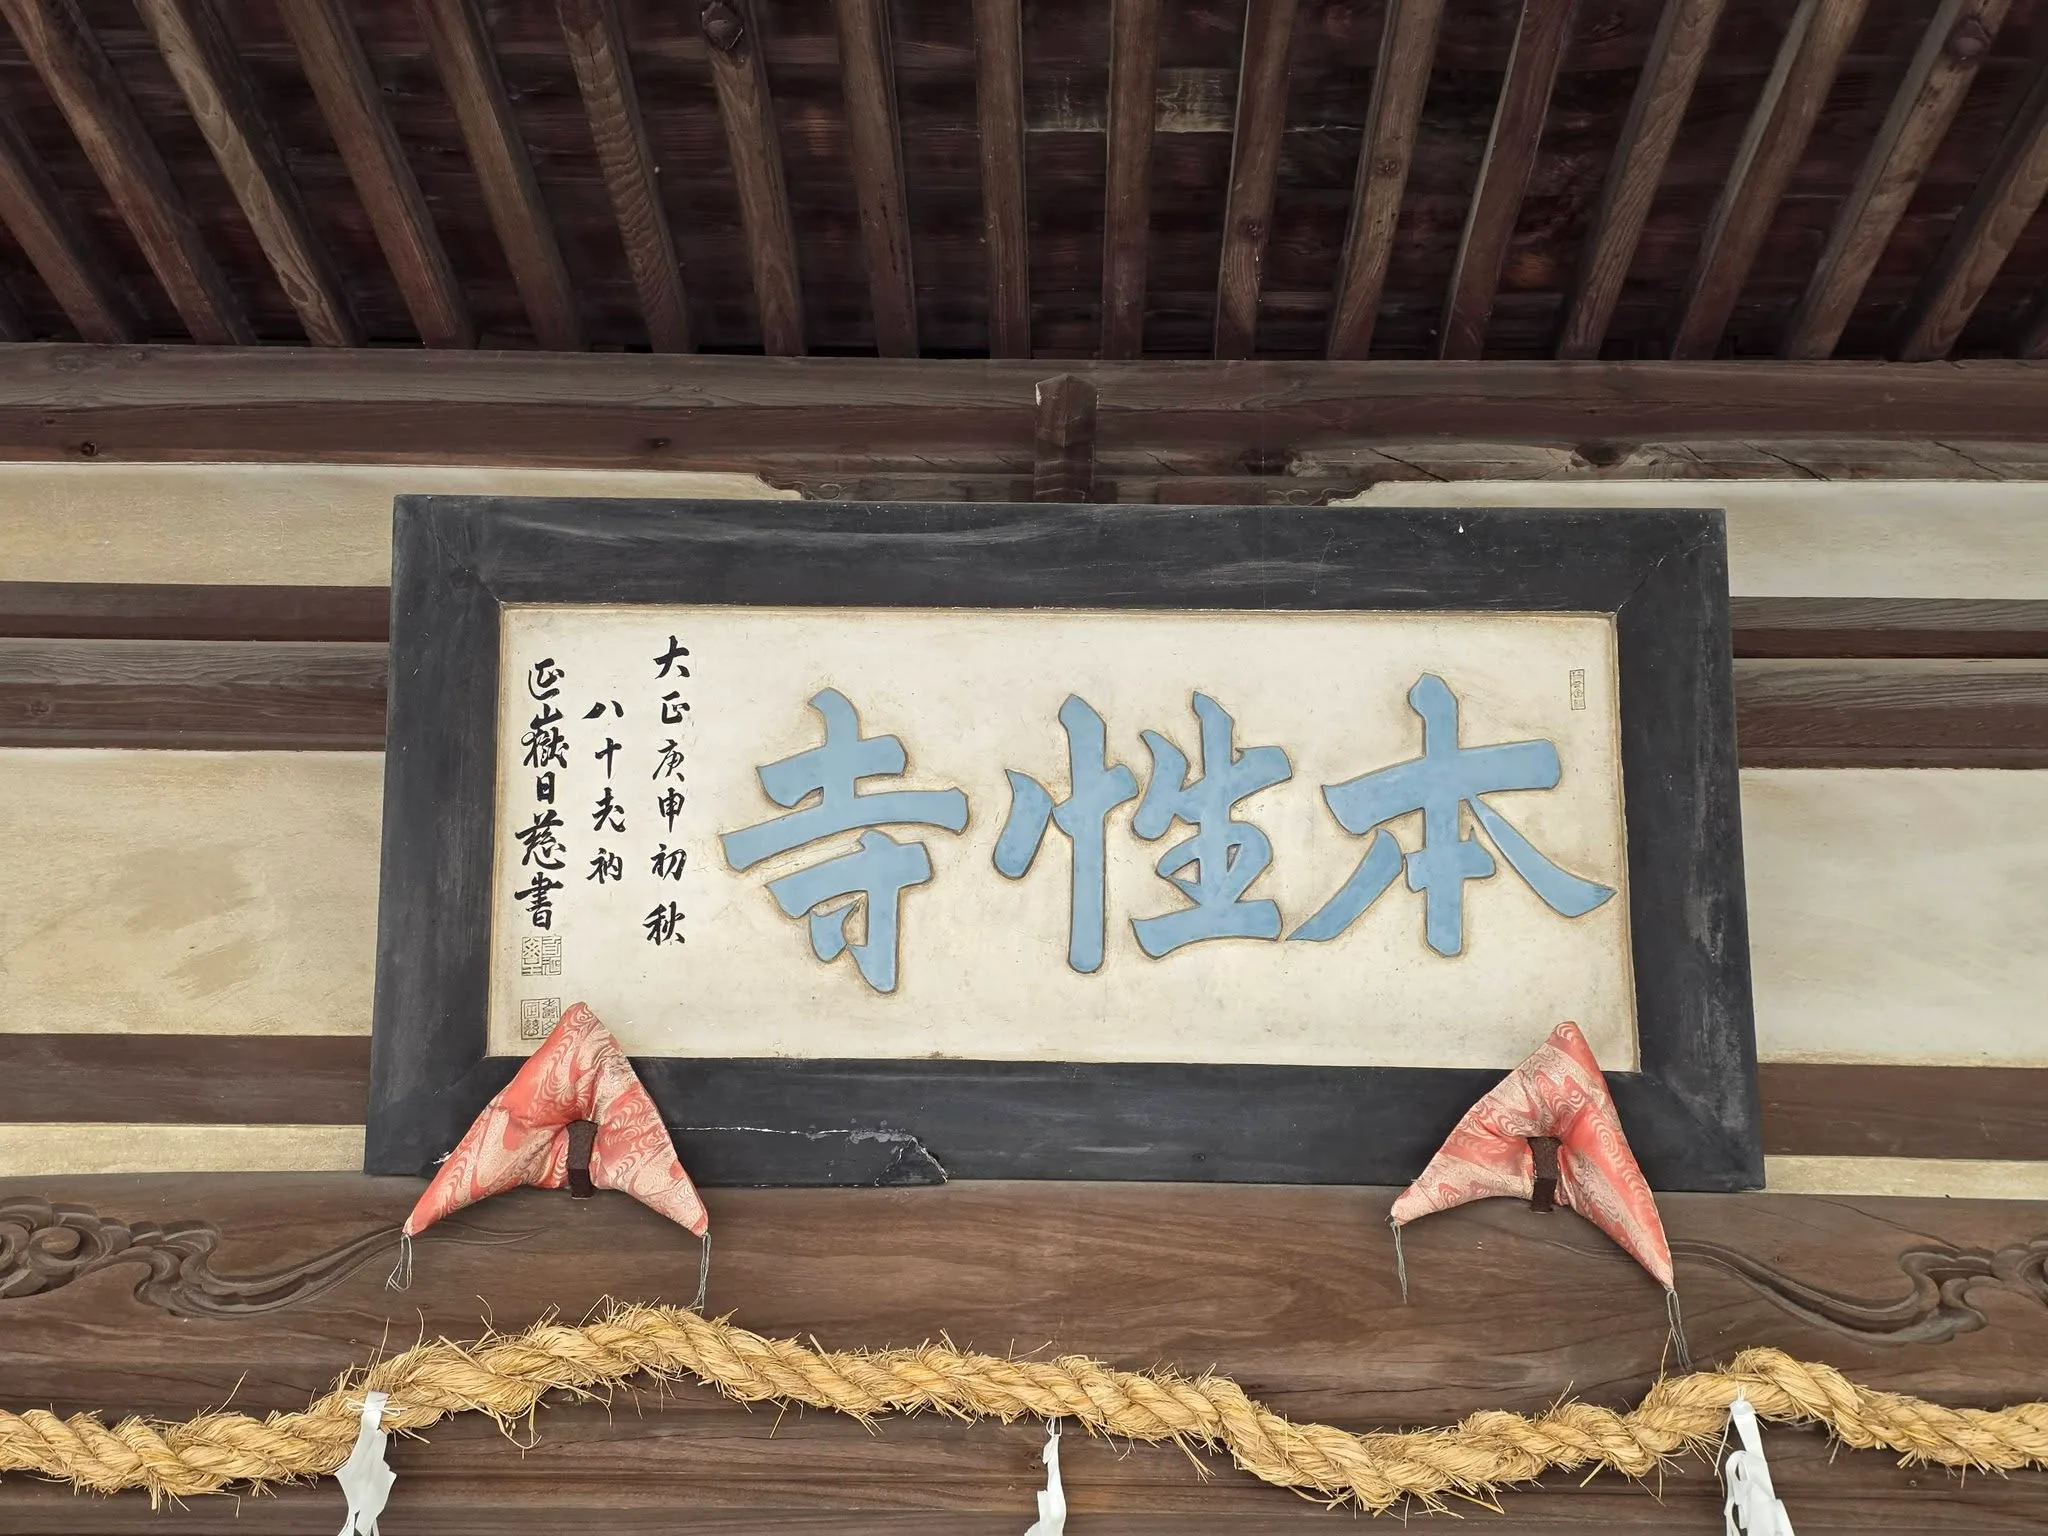 本性寺
大正庚申初秋
八十老衲
正嶽日慈書